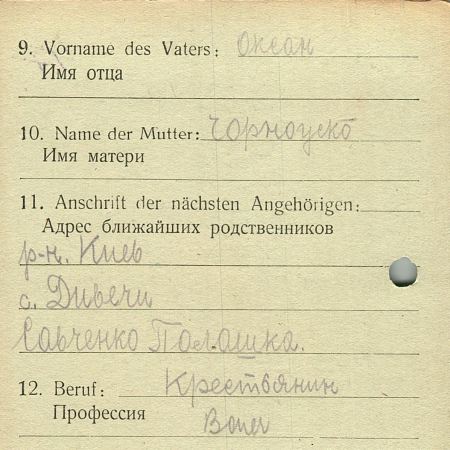 9. Vorname des Vaters: Океан
Имя отца
10. Name der Mutter: Чорноуско
Имя матери
11. Anschrift der nächsten Angehörigen:
Адрес ближайших родственников
р-н. Киев
с. Дивечи
Савченко Палашка.
12. Beruf: Крестьянин
Профессия Bauer